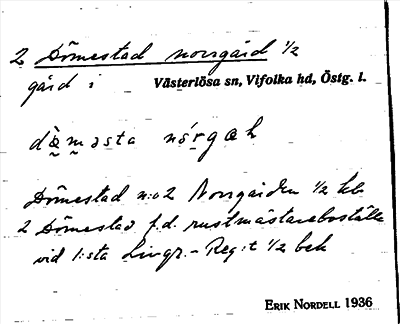 2 Dömestad norrgård ½
gård i Västerlösa sn, Vifolka hd, Östg. l.
dæ̀məsta nórgæh
Dömestad n:o 2 Norrgården ½ hb
2 Dömestad f.d. rustmästareboställe
vid 1:sta Livgr.-Reg:t ½ beh
ERIK NORDELL 1936